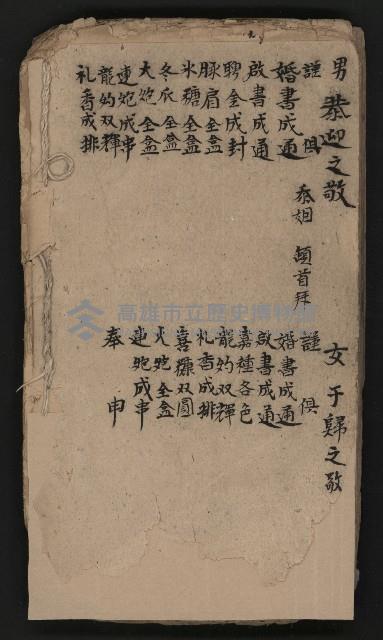 男 恭迎之敬
謹 俱
婚書成通
啟書成通
聘金成封
豚肩全盒
米糖全盒
冬瓜全盒
大炮全盒
連炮成串
龍灼双輝
礼香成排
忝姻 頓首拜
女 于歸之敬
謹 俱
婚書成通
啟書成通
嘉種各色
龍灼双輝
礼香成排
喜糖双圓
火炮全盒
連炮成串
奉申
高雄市立歷史博物館